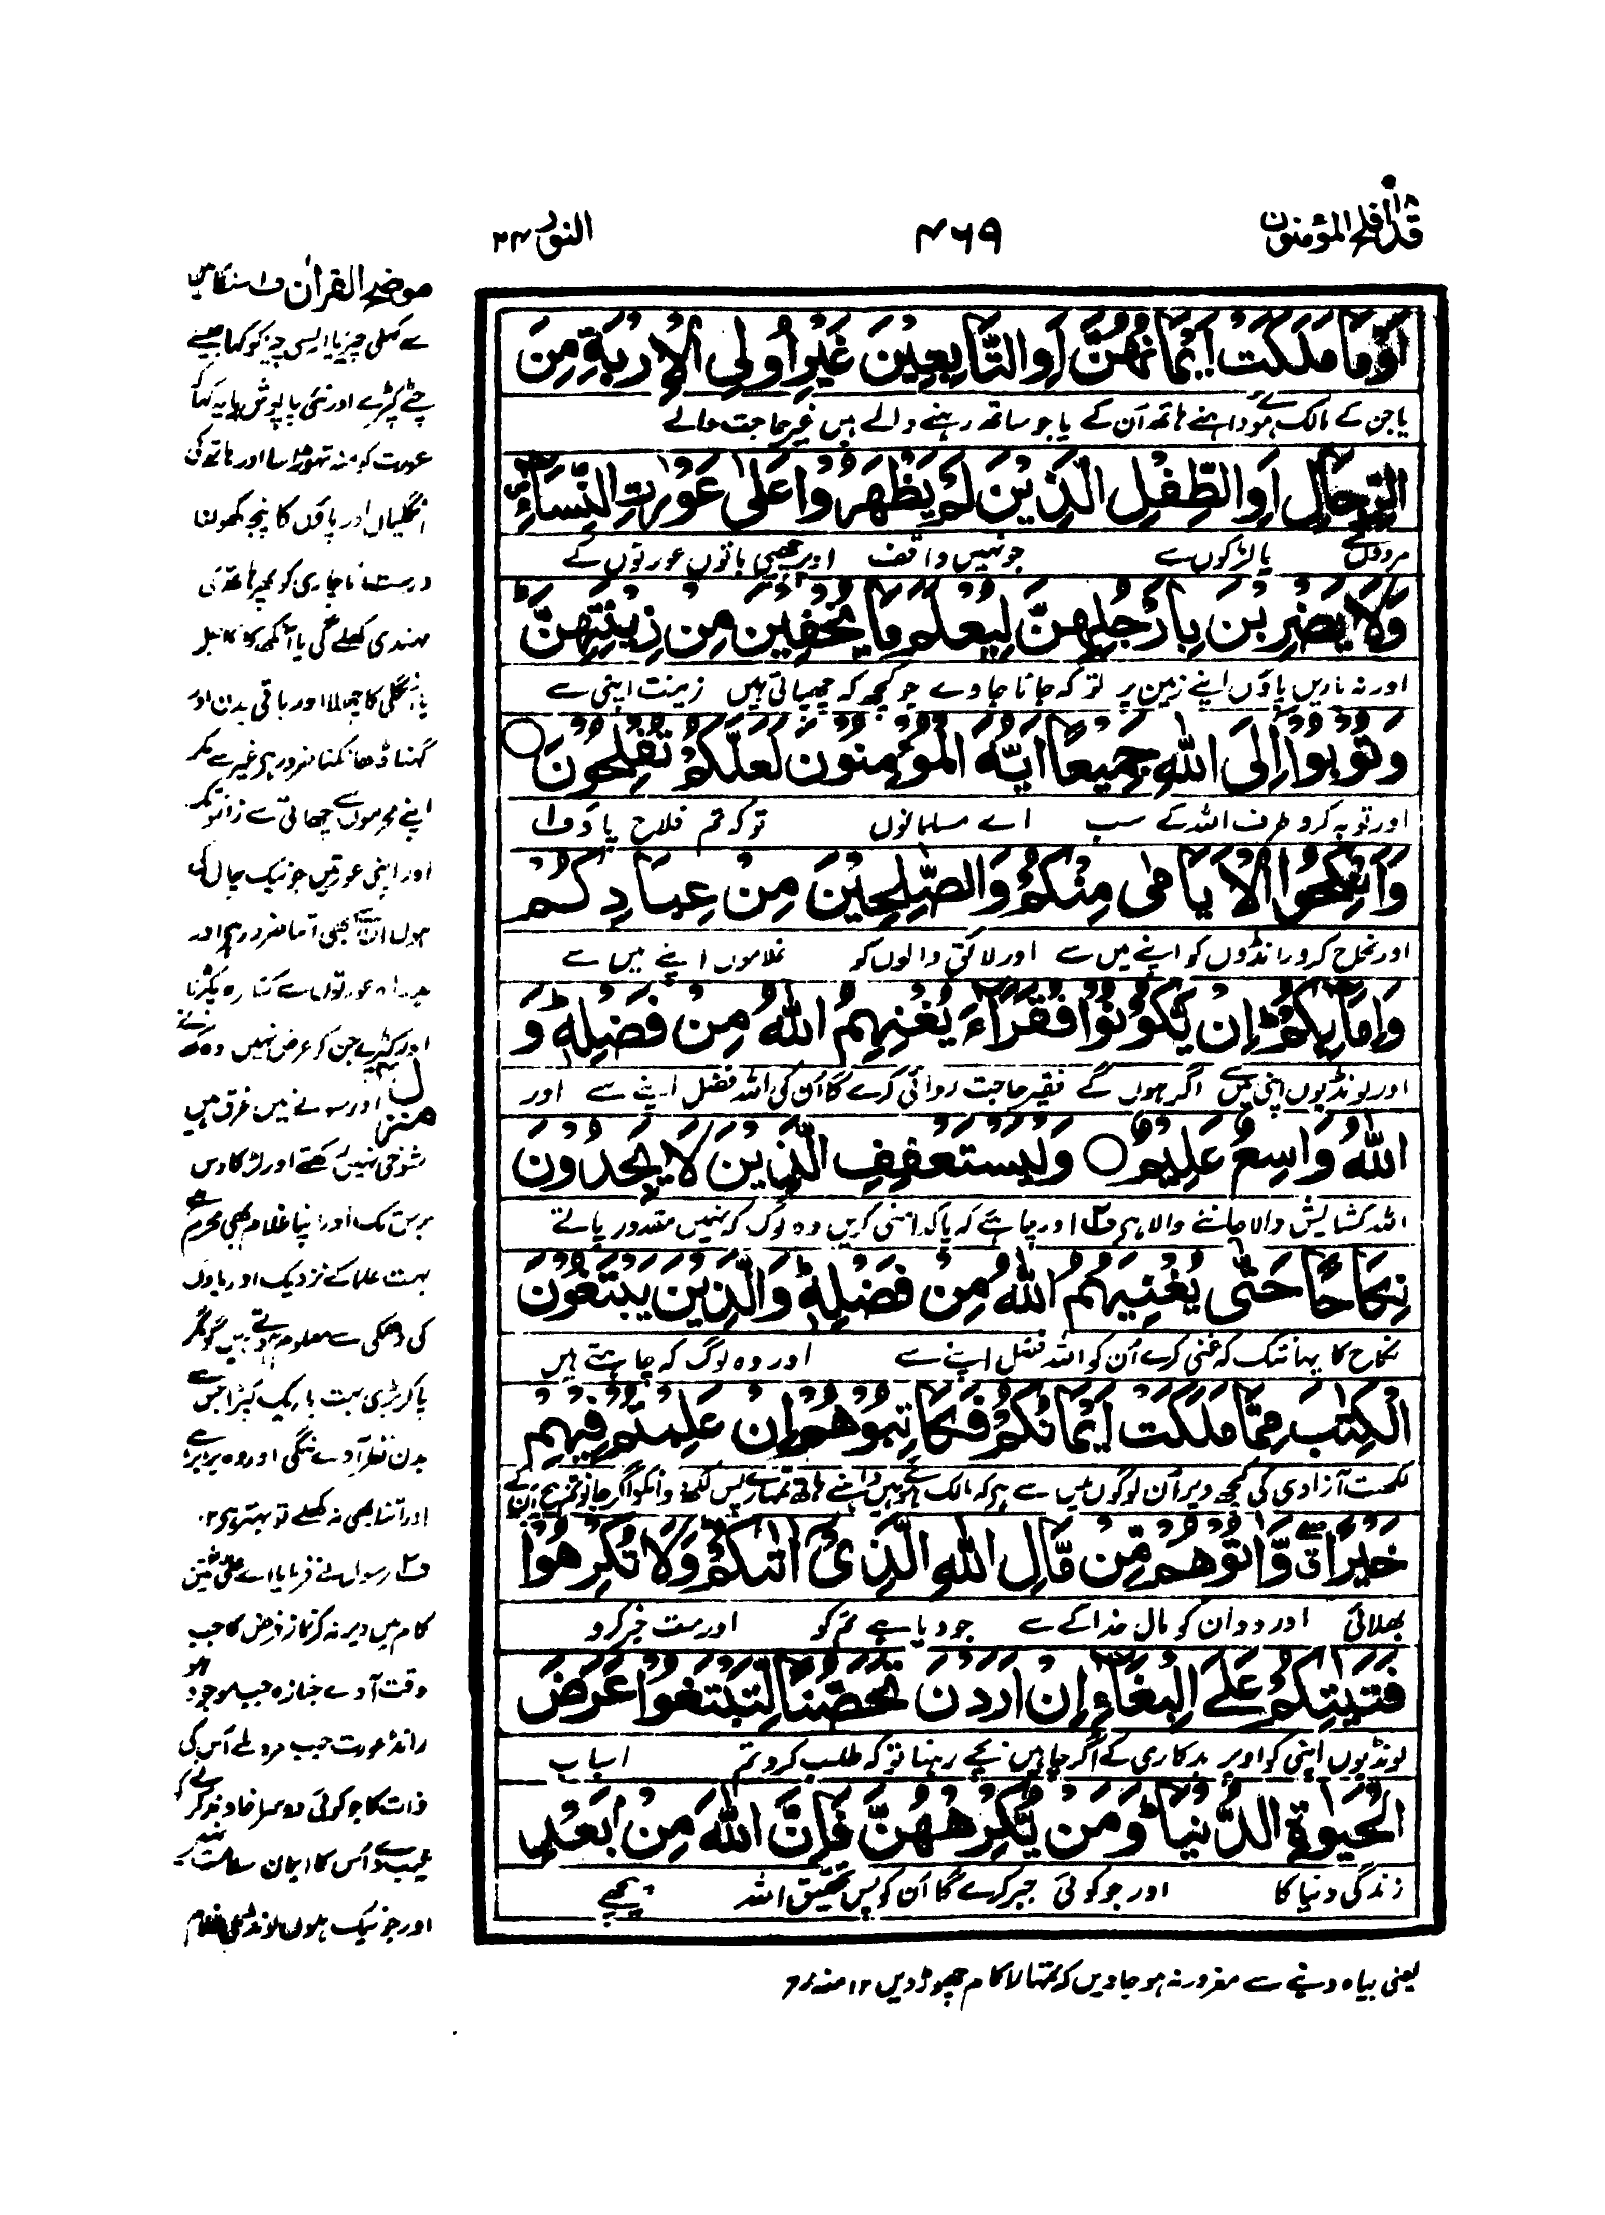 قد افلح المؤمنون ١٨
٤٦٩
النور ٢٤
اَوْ مَا مَلَكَتْ اَيْمَانُهُنَّ اَوِ التّٰبِعِيْنَ غَيْرِ اُولِي الْاِرْبَةِ مِنَ
یا جن کے مالک ہوئے داہنے ہاتھ اُن کے یا جو ساتھ رہنے والے ہیں غیر حاجت والے
الرِّجَالِ اَوِ الطِّفْلِ الَّذِيْنَ لَمْ يَظْهَرُوْا عَلٰى عَوْرٰتِ النِّسَآءِ
مردوں سے یا لڑکوں سے جو نہیں واقف اوپر چھپی باتوں عورتوں کے
وَلَا يَضْرِبْنَ بِاَرْجُلِهِنَّ لِيُعْلَمَ مَا يُخْفِيْنَ مِنْ زِيْنَتِهِنَّ ؕ
اور نہ ماریں پاؤں اپنے زمین پر تو کہ جانا جاوے جو کچھ کہ چھپاتی ہیں زینت اپنی سے
وَتُوْبُوْٓا اِلَى اللّٰهِ جَمِيْعًا اَيُّهَ الْمُؤْمِنُوْنَ لَعَلَّكُمْ تُفْلِحُوْنَ ○
اور توبہ کرو طرف اللہ کے سب اے مسلمانوں تو کہ تم فلاح پاؤ ف۱
وَاَنْكِحُوا الْاَيَامٰى مِنْكُمْ وَالصّٰلِحِيْنَ مِنْ عِبَادِكُمْ
اور نکاح کرو رانڈوں کو اپنے میں سے اور لائق والوں کو غلاموں اپنے میں سے
وَاِمَآئِكُمْ ؕ اِنْ يَّكُوْنُوْا فُقَرَآءَ يُغْنِهِمُ اللّٰهُ مِنْ فَضْلِهٖ ؕ وَ
اور لونڈیوں اپنی میں سے اگر ہوں گے فقیر حاجت روائی کرے گا اُن کی اللہ فضل اپنے سے اور
اللّٰهُ وَاسِعٌ عَلِيْمٌ ○ وَلْيَسْتَعْفِفِ الَّذِيْنَ لَا يَجِدُوْنَ
اللہ کشایش والا جاننے والا ہے ف۲ اور چاہئے کہ پاکدامنی کریں وہ لوگ کہ نہیں مقدور پاتے
نِكَاحًا حَتّٰى يُغْنِيَهُمُ اللّٰهُ مِنْ فَضْلِهٖ ؕ وَالَّذِيْنَ يَبْتَغُوْنَ
نکاح کا یہانتک کہ غنی کرے اُن کو اللہ فضل اپنے سے اور وہ لوگ کہ چاہتے ہیں
الْكِتٰبَ مِمَّا مَلَكَتْ اَيْمَانُكُمْ فَكَاتِبُوْهُمْ اِنْ عَلِمْتُمْ فِيْهِمْ
لکھت آزادی کی کچھ دیر اُن لوگوں میں سے ہر کہ مالک ہوئے ہیں داہنے ہاتھ تمہارے پس لکھ دو انکو اگر جانو تم بیچ اُن کے
خَيْرًا ۖ وَّاٰتُوْهُمْ مِّنْ مَّالِ اللّٰهِ الَّذِيْٓ اٰتٰىكُمْ ؕ وَلَا تُكْرِهُوْا
بھلائی اور دو اُن کو مال خدا کے سے جو دیا ہے تم کو اور مت جبر کرو
فَتَيٰتِكُمْ عَلَى الْبِغَآءِ اِنْ اَرَدْنَ تَحَصُّنًا لِّتَبْتَغُوْا عَرَضَ
لونڈیوں اپنی کو اوپر بدکاری کے اگر چاہیں بچے رہنا تو کہ طلب کرو تم اسباب
الْحَيٰوةِ الدُّنْيَا ؕ وَمَنْ يُّكْرِهْهُّنَّ فَاِنَّ اللّٰهَ مِنْۢ بَعْدِ
زندگی دنیا کا اور جو کوئی جبر کرے گا اُن کو پس تحقیق اللہ پیچھے
موضح القرآن ف۱ سنگار میں
سے کھلی چیز یا ایسی چیز کو کہا جیسے
کپڑے اور نئی پاپوش یا یہ کہا
عورت کو منہ تھوڑا سا اور ہاتھ کی
انگلیاں اور پاؤں کا پنجہ کھولنا
درست ناچاری کو پھر ہاتھ کی
مہندی کھلے گی یا آنکھ کا کاجل
یا انگلی کا چھلا اور باقی بدن اور
گہنا ڈھانکنا ضرور ہر غیر سے مگر
اپنے محرموں سے چھاتی سے زانو تک
اور اپنی عورتیں جو نیک چال کی
ہوں ان سے بھی اتنا ضرور ہر اور
بدراہ عورتوں سے کنارہ پکڑنا
اور کمیرے جن کو غرض نہیں وہ کہ
اور سونے میں غرق ہیں
شوخی نہیں رکھتے اور لڑکا دس
برس تک اور اپنا غلام بھی محرم ہے
بہت علما کے نزدیک اور پاؤں
کی دھمکی سے معلوم ہوتے ہیں گھونگر
بہت باریک کپڑا جس سے
بدن نظر آوے ننگی اور وہ برابر ہے
اور اتنا بھی نہ کھلے تو بہتر ہر ۱۲
ف۲ رسول نے فرمایا اے علی تین
کام میں دیر نہ کر نماز فرض کا جب
وقت آوے جنازہ جب موجود ہو
رانڈ عورت جب مرد ملے اُس کی
ذات کا جو کوئی دوسرا خاوند کرنے کو
عیب دے اُس کا ایمان سلامت نہیں
اور جو نیک ہوں لونڈی غلام
یعنی بیاہ دینے سے مغرور نہ ہو جاویں کہ تمہارا کام چھوڑ دیں ۱۲ منہ رح